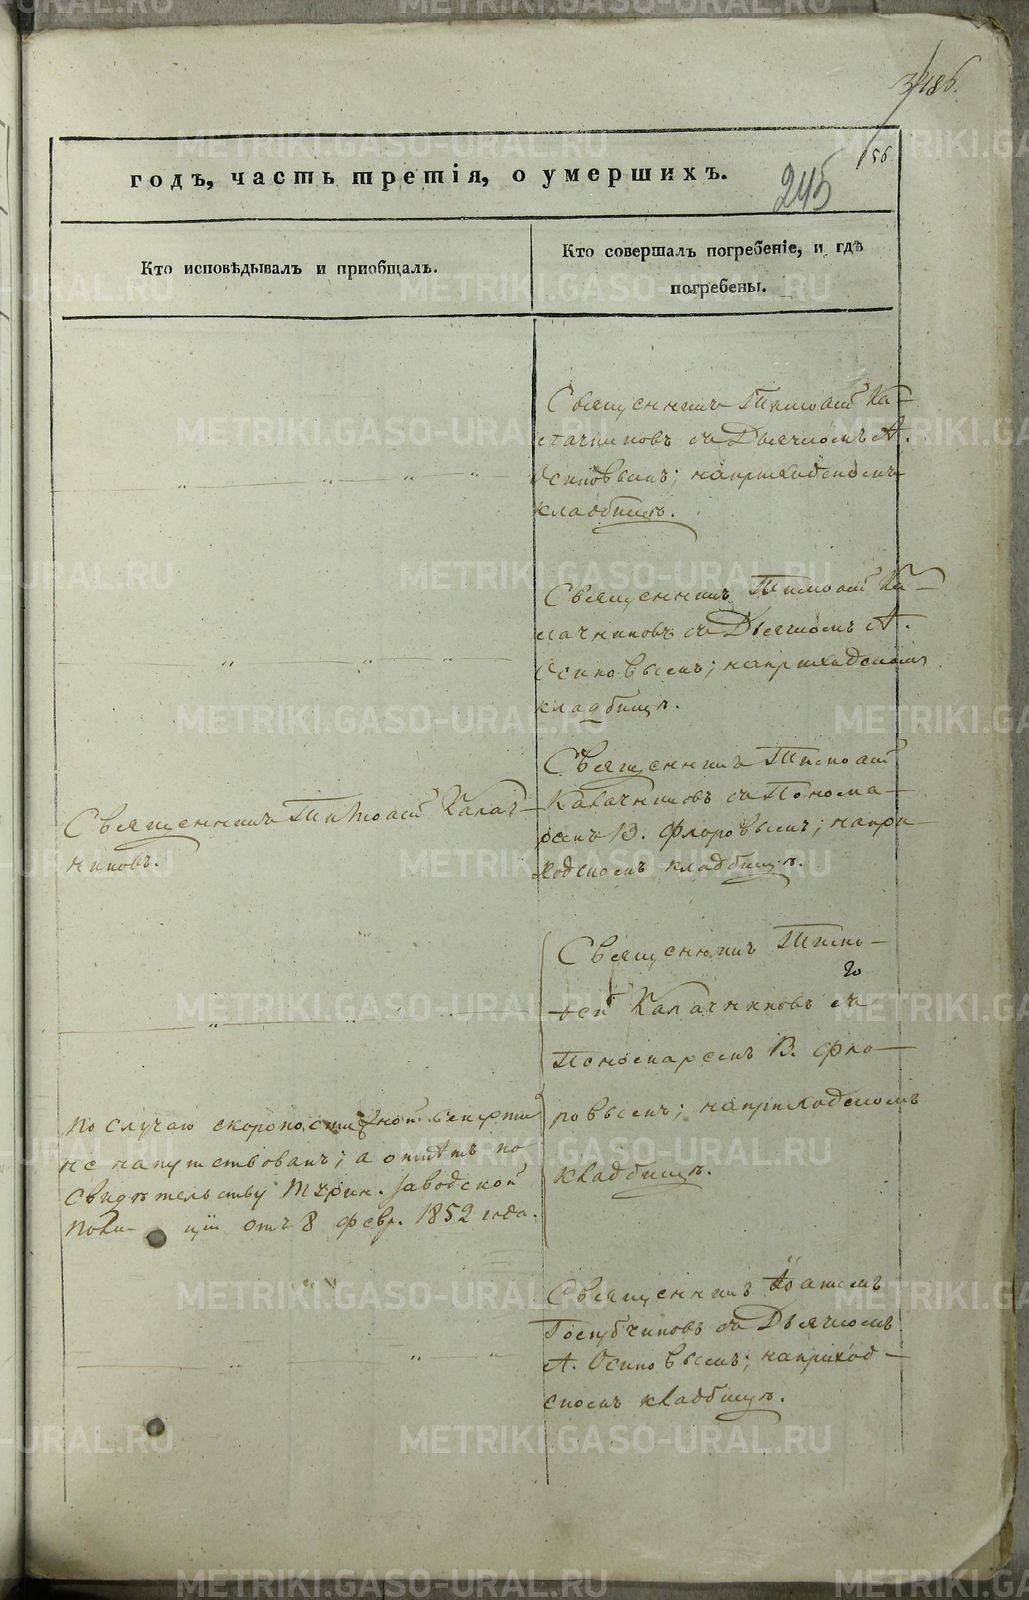 348об.
156
годъ, часть третія, о умершихъ.
245
Кто исповѣдывалъ и приобщалъ.
Кто совершалъ погребеніе, и гдѣ
погребены.
Священникъ Тимоѳей Ка-
лачниковъ съ Дьячкомъ А.
Осиповымъ; на приходскомъ
кладбищѣ.
Священникъ Тимоѳей Ка-
лачниковъ съ Дьячкомъ А.
Осиповымъ; на приходскомъ
кладбищѣ.
Священникъ Тимоѳей Калач-
никовъ.
Священникъ Тимоѳей
Калачниковъ съ Понома-
ремъ В. Флоровымъ; на при-
ходскомъ кладбищѣ.
Священникъ Тимо-
ѳей Калачниковъ съ
Пономаремъ В. Фло-
ровымъ; на приходскомъ
кладбищѣ.
По случаю скоропостижной смерти
не напутствованъ; а отпѣтъ по
свидѣтельству Турин. Заводской
Поли- ціи отъ 8 февр. 1852 года.
Священникъ
съ Дьячкомъ
А. Осиповымъ; на приход-
скомъ кладбищѣ.
METRIKI.GASO-URAL.RU